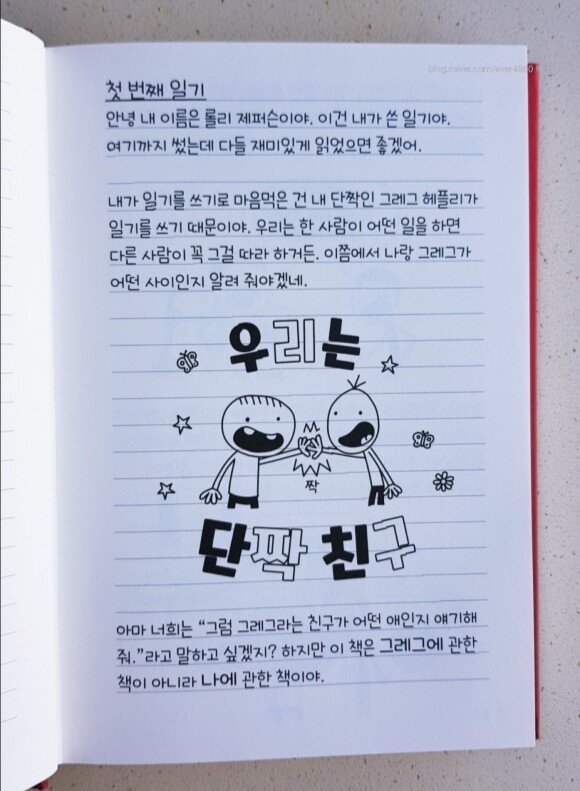 blog.naver.com/ever48
첫 번째 일기
안녕 내 이름은 롤리 제퍼슨이야. 이건 내가 쓴 일기야.
여기까지 썼는데 다들 재미있게 읽었으면 좋겠어.
내가 일기를 쓰기로 마음먹은 건 내 단짝인 그레그 헤플리가
일기를 쓰기 때문이야. 우리는 한 사람이 어떤 일을 하면
다른 사람이 꼭 그걸 따라 하거든. 이쯤에서 나랑 그레그가
어떤 사이인지 알려 줘야겠네.
우리는
짝
단짝 친구
아마 너희는 “그럼 그레그라는 친구가 어떤 애인지 얘기해
줘.”라고 말하고 싶겠지? 하지만 이 책은 그레그에 관한
책이 아니라 나에 관한 책이야.